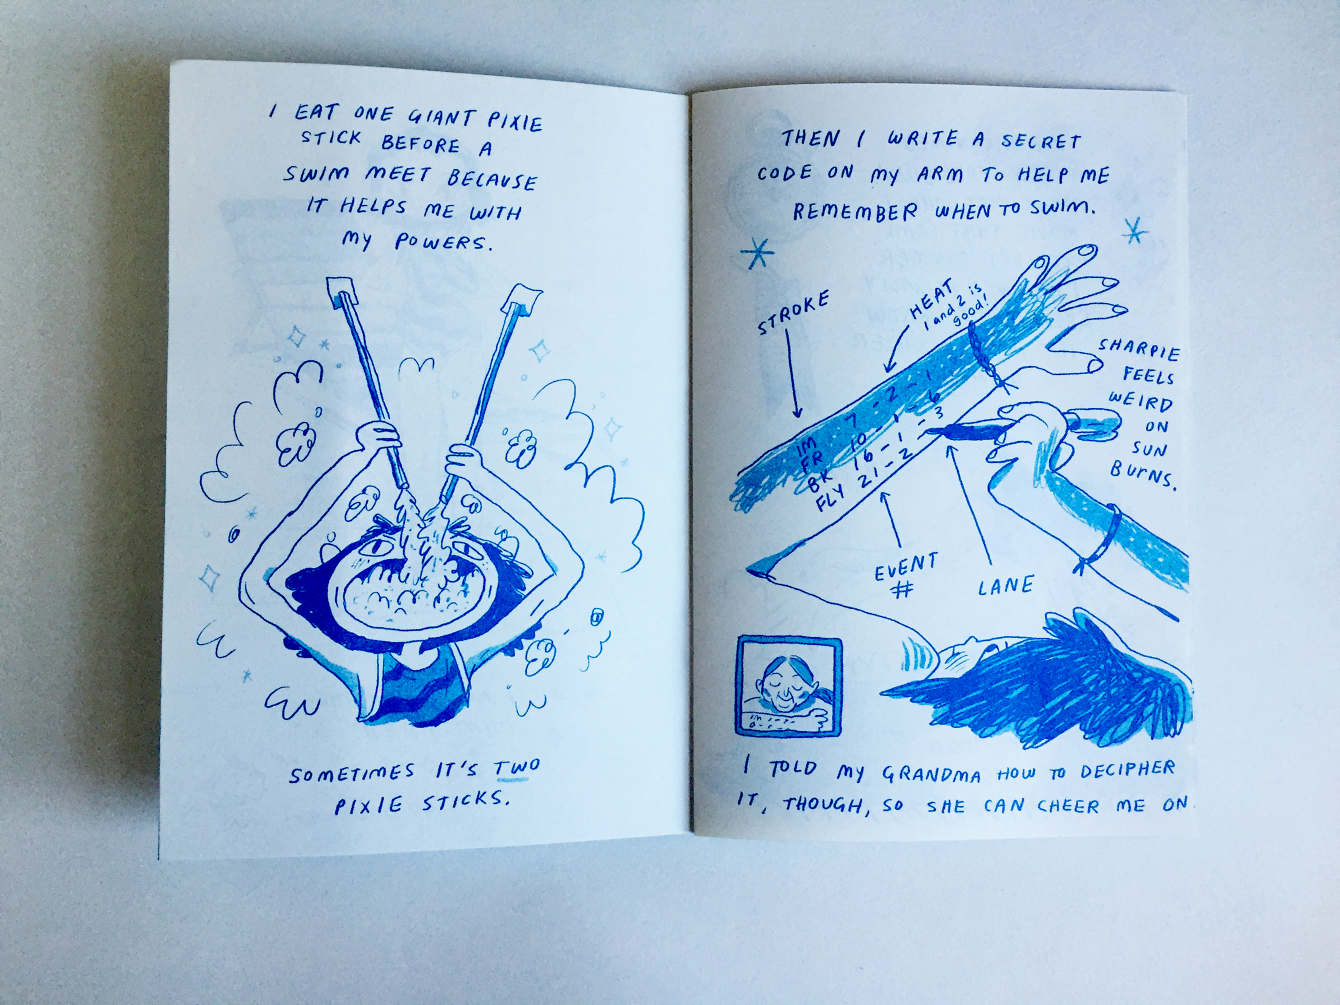 I EAT ONE GIANT PIXIE
STICK BEFORE A
SWIM MEET BECAUSE
IT HELPS ME WITH
MY POWERS.
SOMETIMES IT'S TWO
PIXIE STICKS.
THEN I WRITE A SECRET
CODE ON MY ARM TO HELP ME
REMEMBER WHEN TO SWIM.
STROKE
HEAT
1 and 2 is
good!
IM 7-2-1
FR 10-1-6
BK 16-1-3
FLY 21-2-
SHARPIE
FEELS
WEIRD
ON
SUN
BURNS.
EVENT
#
LANE
I TOLD MY GRANDMA HOW TO DECIPHER
IT, THOUGH, SO SHE CAN CHEER ME ON.